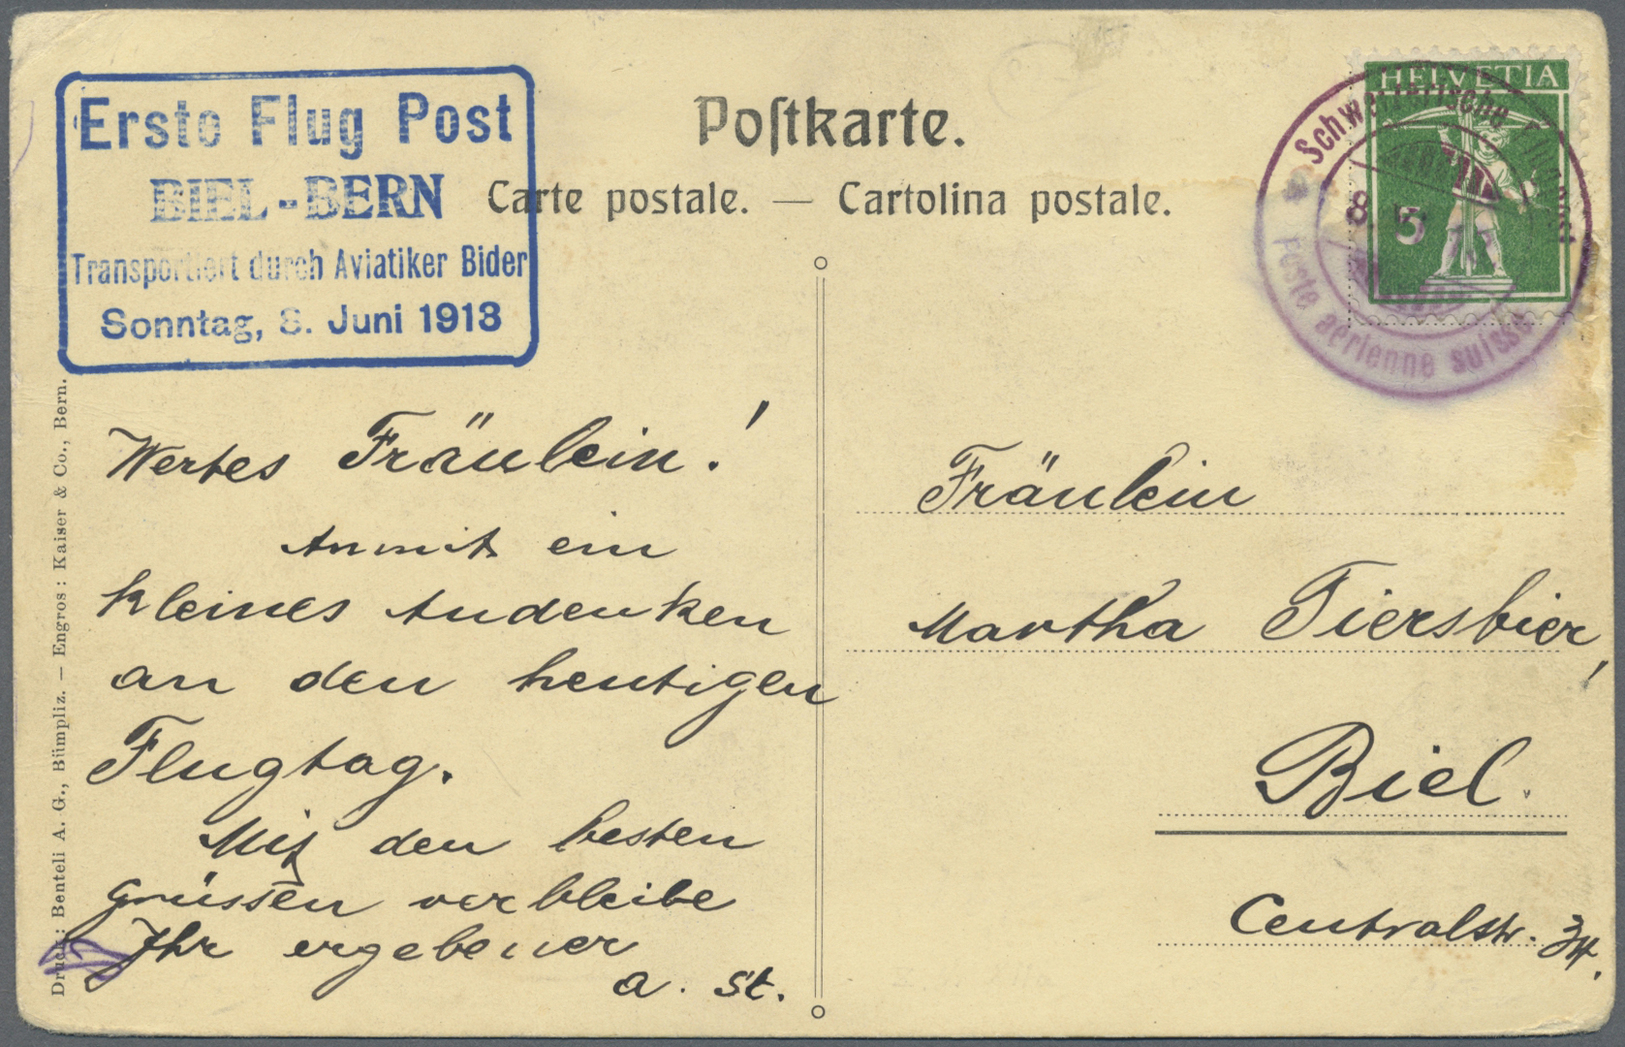 Erste Flug Post
BIEL-BERN
Transportiert durch Aviatiker Bider
Sonntag, 8. Juni 1913
Poſtkarte.
Carte postale. — Cartolina postale.
HELVETIA
5
Schweizerische Flugpost
8.
Poste aérienne suisse
Druck: Benteli A. G., Bümpliz. — Engros: Kaiser & Co., Bern.
Wertes Fräulein!
Anmit ein
kleines Andenken
an den heutigen
Flugtag.
Mit den besten
Grüssen verbleibe
Ihr ergebener
A. St.
Fräulein
Martha Tiersbier,
Biel.
Centralstr.